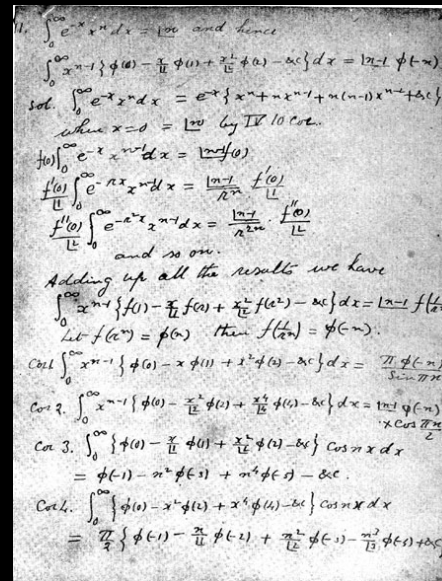 11. ∫₀^∞ e^{-x} x^n dx = |n and hence
∫₀^∞ x^{n-1} {φ(0) - x/|1 φ(1) + x²/|2 φ(2) - &c} dx = |n-1 φ(-n)
Sol. ∫₀^∞ e^{-x} x^n dx = e^{-x} {x^n + n x^{n-1} + n(n-1) x^{n-2} + &c}
when x=0 = |n by IV 10 Cor.
f(0) ∫₀^∞ e^{-x} x^{n-1} dx = |n-1 f(0)
f'(0)/|1 ∫₀^∞ e^{-rx} x^{n-1} dx = |n-1/r^n f'(0)/|1
f''(0)/|2 ∫₀^∞ e^{-r²x} x^{n-1} dx = |n-1/r^{2n} · f''(0)/|2
and so on.
Adding up all the results we have
∫₀^∞ x^{n-1} {f(1) - x/|1 f(r) + x²/|2 f(r²) - &c} dx = |n-1 f(1/r^n
Let f(r^n) = φ(n) then f(1/r^n) = φ(-n).
Cor 1 ∫₀^∞ x^{n-1} {φ(0) - x φ(1) + x² φ(2) - &c} dx = π φ(-n)/Sin πn
Cor 2. ∫₀^∞ x^{n-1} {φ(0) - x²/|2 φ(2) + x⁴/|4 φ(4) - &c} dx = |n-1 φ(-n)
× Cos πn/2
Cor 3. ∫₀^∞ {φ(0) - x/|1 φ(1) + x²/|2 φ(2) - &c} Cos nx dx
= φ(-1) - n² φ(-3) + n⁴ φ(-5) - &c.
Cor 4. ∫₀^∞ {φ(0) - x² φ(2) + x⁴ φ(4) - &c} Cos nx dx
= π/2 {φ(-1) - n/|1 φ(-2) + n²/|2 φ(-3) - n³/|3 φ(-4) + &c